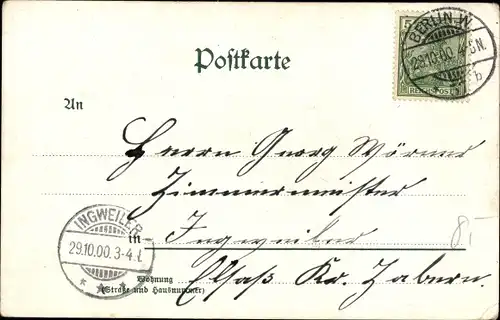 BERLIN.W.
28.10.00. 4-5N.
b
5
REICHSPOST
Postkarte
An
Herrn Georg Wörner
Zimmermeister
in Ingweiler
Elsaß Kr. Zabern.
INGWEILER
29.10.00. 3-4.
Wohnung
(Straße und Hausnummer)
8,-